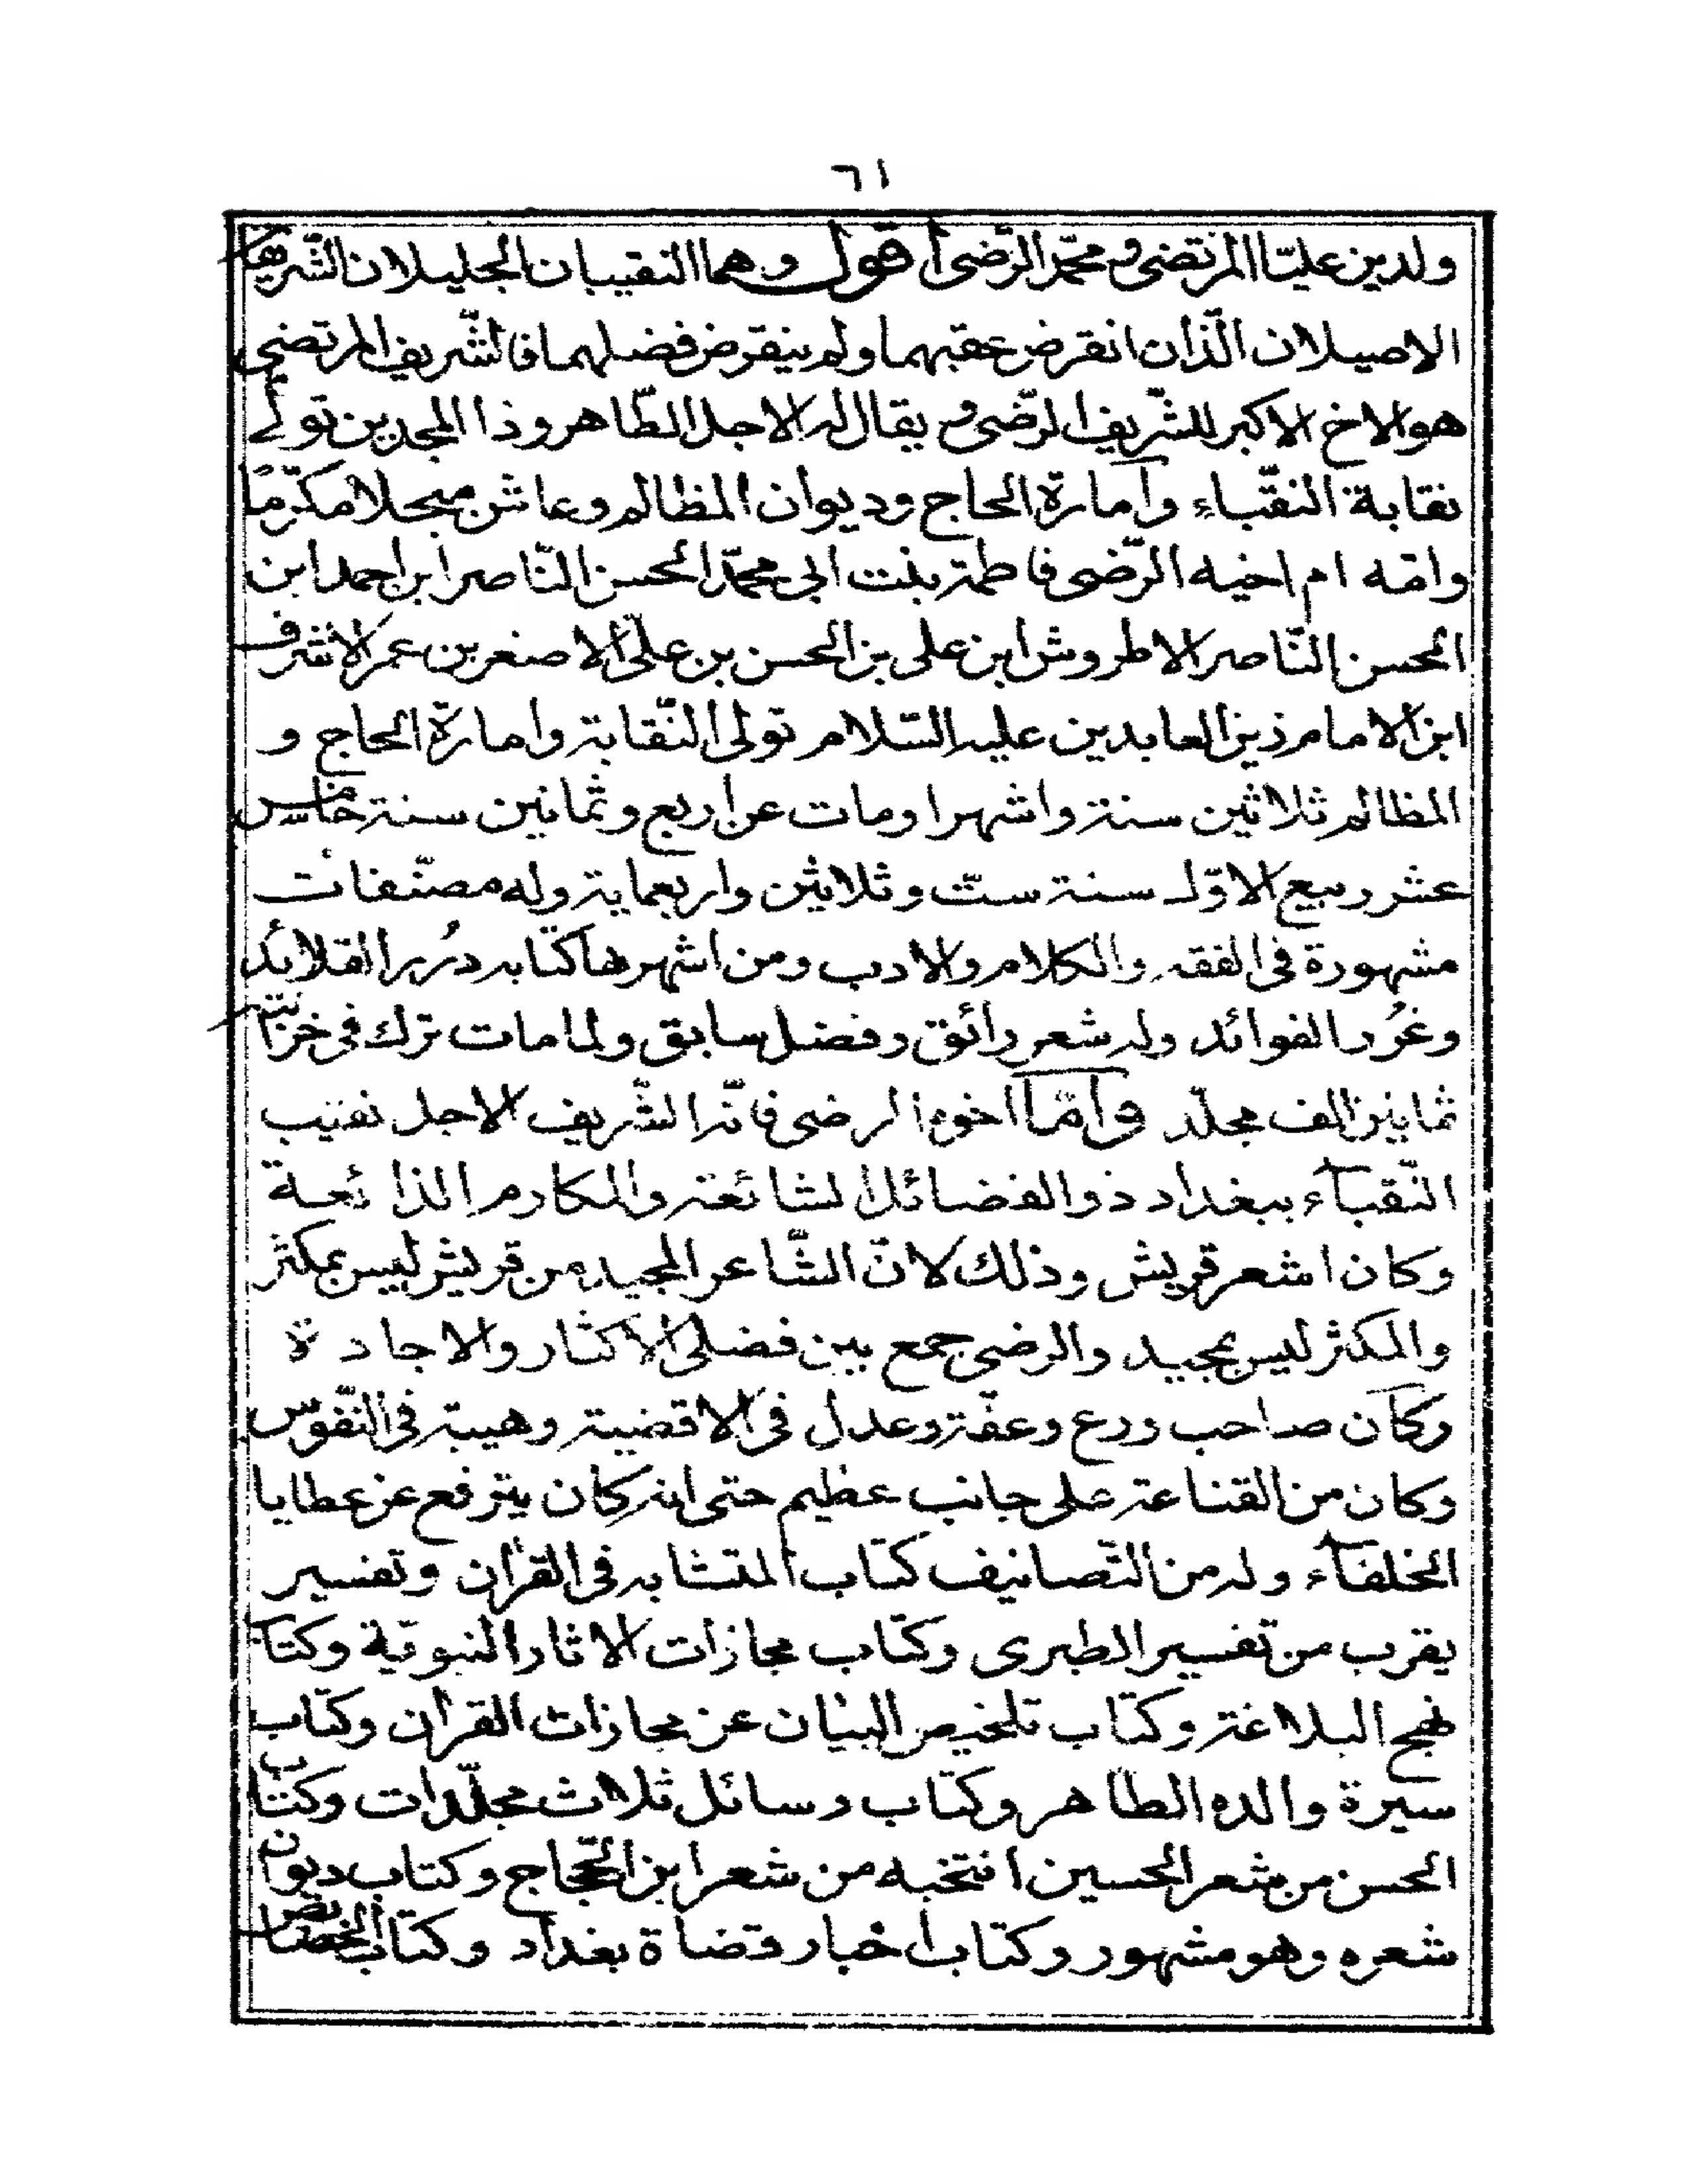 ٦١
ولدين عليّا المرتضى و محمّد الرّضى اقول وهما النقيبان الجليلان الشّريفان
الاصيلان الّذان انقرض عقبهما ولم ينقرض فضلهما فالشّريف المرتضى
هو الاخ الاكبر للشّريف الرّضى و يقال له الاجل الطّاهر وذا المجدين تولّى
نقابة النقّباء وآمارة الحاج وديوان المظالم وعاش مبجلا مكرّمًا
وامّه ام اخيه الرّضى فاطمة بنت ابى محمّد الحسن النّاصر ابن احمد ابن
الحسن النّاصر الاطروش ابن على بن الحسن بن علىّ الاصغر بن عمر الاشرف
ابن الامام زين العابدين عليه السّلام تولى النّقابة وامارة الحاج و
المظالم ثلاثين سنة واشهرا ومات عن اربع وثمانين سنة خامس
عشر ربيع الاوّل سنة ستّ وثلاثين واربعماية وله مصنّفات
مشهورة فى الفقه والكلام والادب ومن اشهرها كتابه دُرر القلائد
وغُرر الفوائد وله شعر رائق وفضل سابق ولما مات ترك فى خزانته
ثمانين الف مجلّد وامّا اخوه الرضى فانّه الشّريف الاجل نقيب
النّقبآء ببغداد ذو الفضائل الشائعة والمكارم الذائعة
وكان اشعر قريش وذلك لانّ الشّاعر المجيد من قريش ليس بمكثر
والمكثر ليس بمجيد والرضى جمع بين فضلى الاكثار والاجادة
وكان صاحب ورع وعفّة وعدل فى الاقضية وهيبة فى النّفوس
وكان من القناعة على جانب عظيم حتى انه كان يترفع عن عطايا
الخلفآء وله من التّصانيف كتاب المتشابه فى القرأن وتفسير
يقرب من تفسير الطبرى وكتاب مجازات الاثار النبويّة وكتاب
نهج البلاغة وكتاب تلخيص البيان عن مجازات القرأن وكتاب
سيرة والده الطاهر وكتاب رسائل ثلاث مجلّدات وكتاب
الحسن من شعر الحسين انتخبه من شعر ابن الحّجاج وكتاب ديوان
شعره وهو مشهور وكتاب اخبار قضاة بغداد وكتاب الخصائص